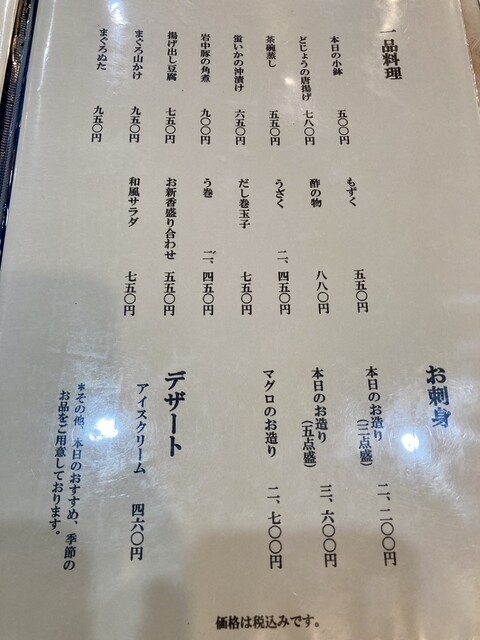 一品料理
本日の小鉢 五〇〇円
どじょうの唐揚げ 七八〇円
茶碗蒸し 五五〇円
蛍いかの沖漬け 六五〇円
岩中豚の角煮 九〇〇円
揚げ出し豆腐 七五〇円
まぐろ山かけ 九五〇円
まぐろぬた 九五〇円
もずく 五五〇円
酢の物 八八〇円
うざく 二、四五〇円
だし巻玉子 七五〇円
う巻 二、四五〇円
お新香盛り合わせ 五五〇円
和風サラダ 七五〇円
お刺身
本日のお造り(三点盛) 二、二〇〇円
本日のお造り(五点盛) 三、六〇〇円
マグロのお造り 二、七〇〇円
デザート
アイスクリーム 四六〇円
*その他、本日のおすすめ、季節の
お品をご用意しております。
価格は税込みです。